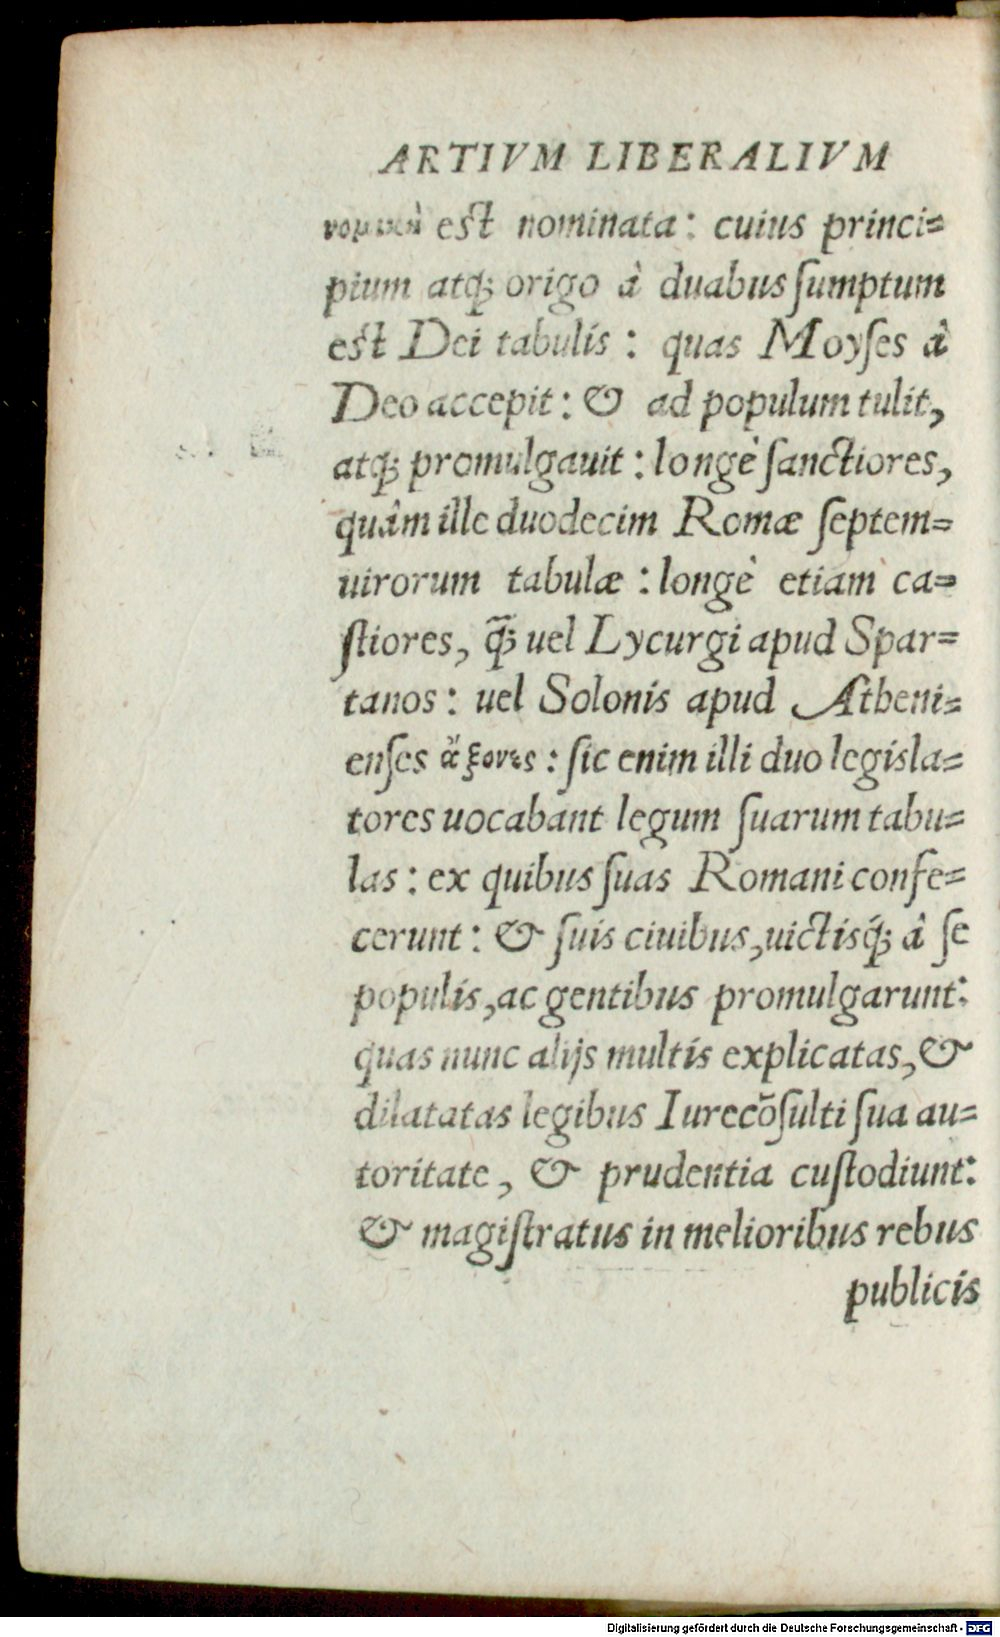 ARTIVM LIBERALIVM
νομικὴ est nominata: cuius princi=
pium atq́; origo à duabus ſumptum
est Dei tabulis: quas Moyſes à
Deo accepit: & ad populum tulit,
atq́; promulgauit: longè ſanctiores,
quàm ille duodecim Romæ ſeptem=
uirorum tabulæ: longè etiam ca=
ſtiores, q̃; uel Lycurgi apud Spar=
tanos: uel Solonis apud Atheni=
enſes ἄξονες: ſic enim illi duo legisla=
tores uocabant legum ſuarum tabu=
las: ex quibus ſuas Romani confe=
cerunt: & ſuis ciuibus, uictisq́; à ſe
populis, ac gentibus promulgarunt:
quas nunc alijs multis explicatas, &
dilatatas legibus Iurecõſulti ſua au=
toritate, & prudentia cuſtodiunt:
& magiſtratus in melioribus rebus
publicis
Digitalisierung gefördert durch die Deutsche Forschungsgemeinschaft - DFG